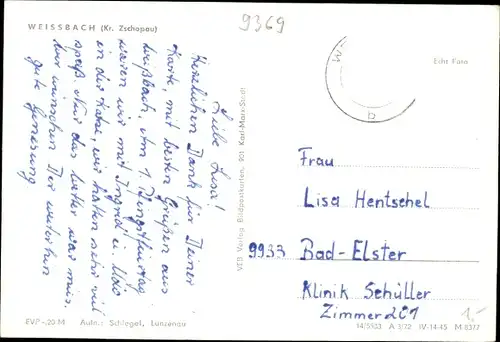 WEISSBACH (Kr. Zschopau)
9369
Echt Foto
Liebe Lisa!
Herzlichen Dank für Deine
Karte, mit besten Grüßen aus
Weißbach. Am 1. Pfingstfeiertag
waren wir mit Ingrid u. Udo
in der wir hatten sehr viel
Spaß. Nur das Wetter war mies.
Wir wünschen Dir weiterhin
gute Genesung
VEB Verlag Bildpostkarten, 901 Karl-Marx-Stadt
Frau
Lisa Hentschel
9933 Bad-Elster
Klinik Schüller
Zimmer 201
EVP -,20 M Aufn.: Schlegel, Lunzenau
14/5933 A 3/72 IV-14-45 M 8377
1,-